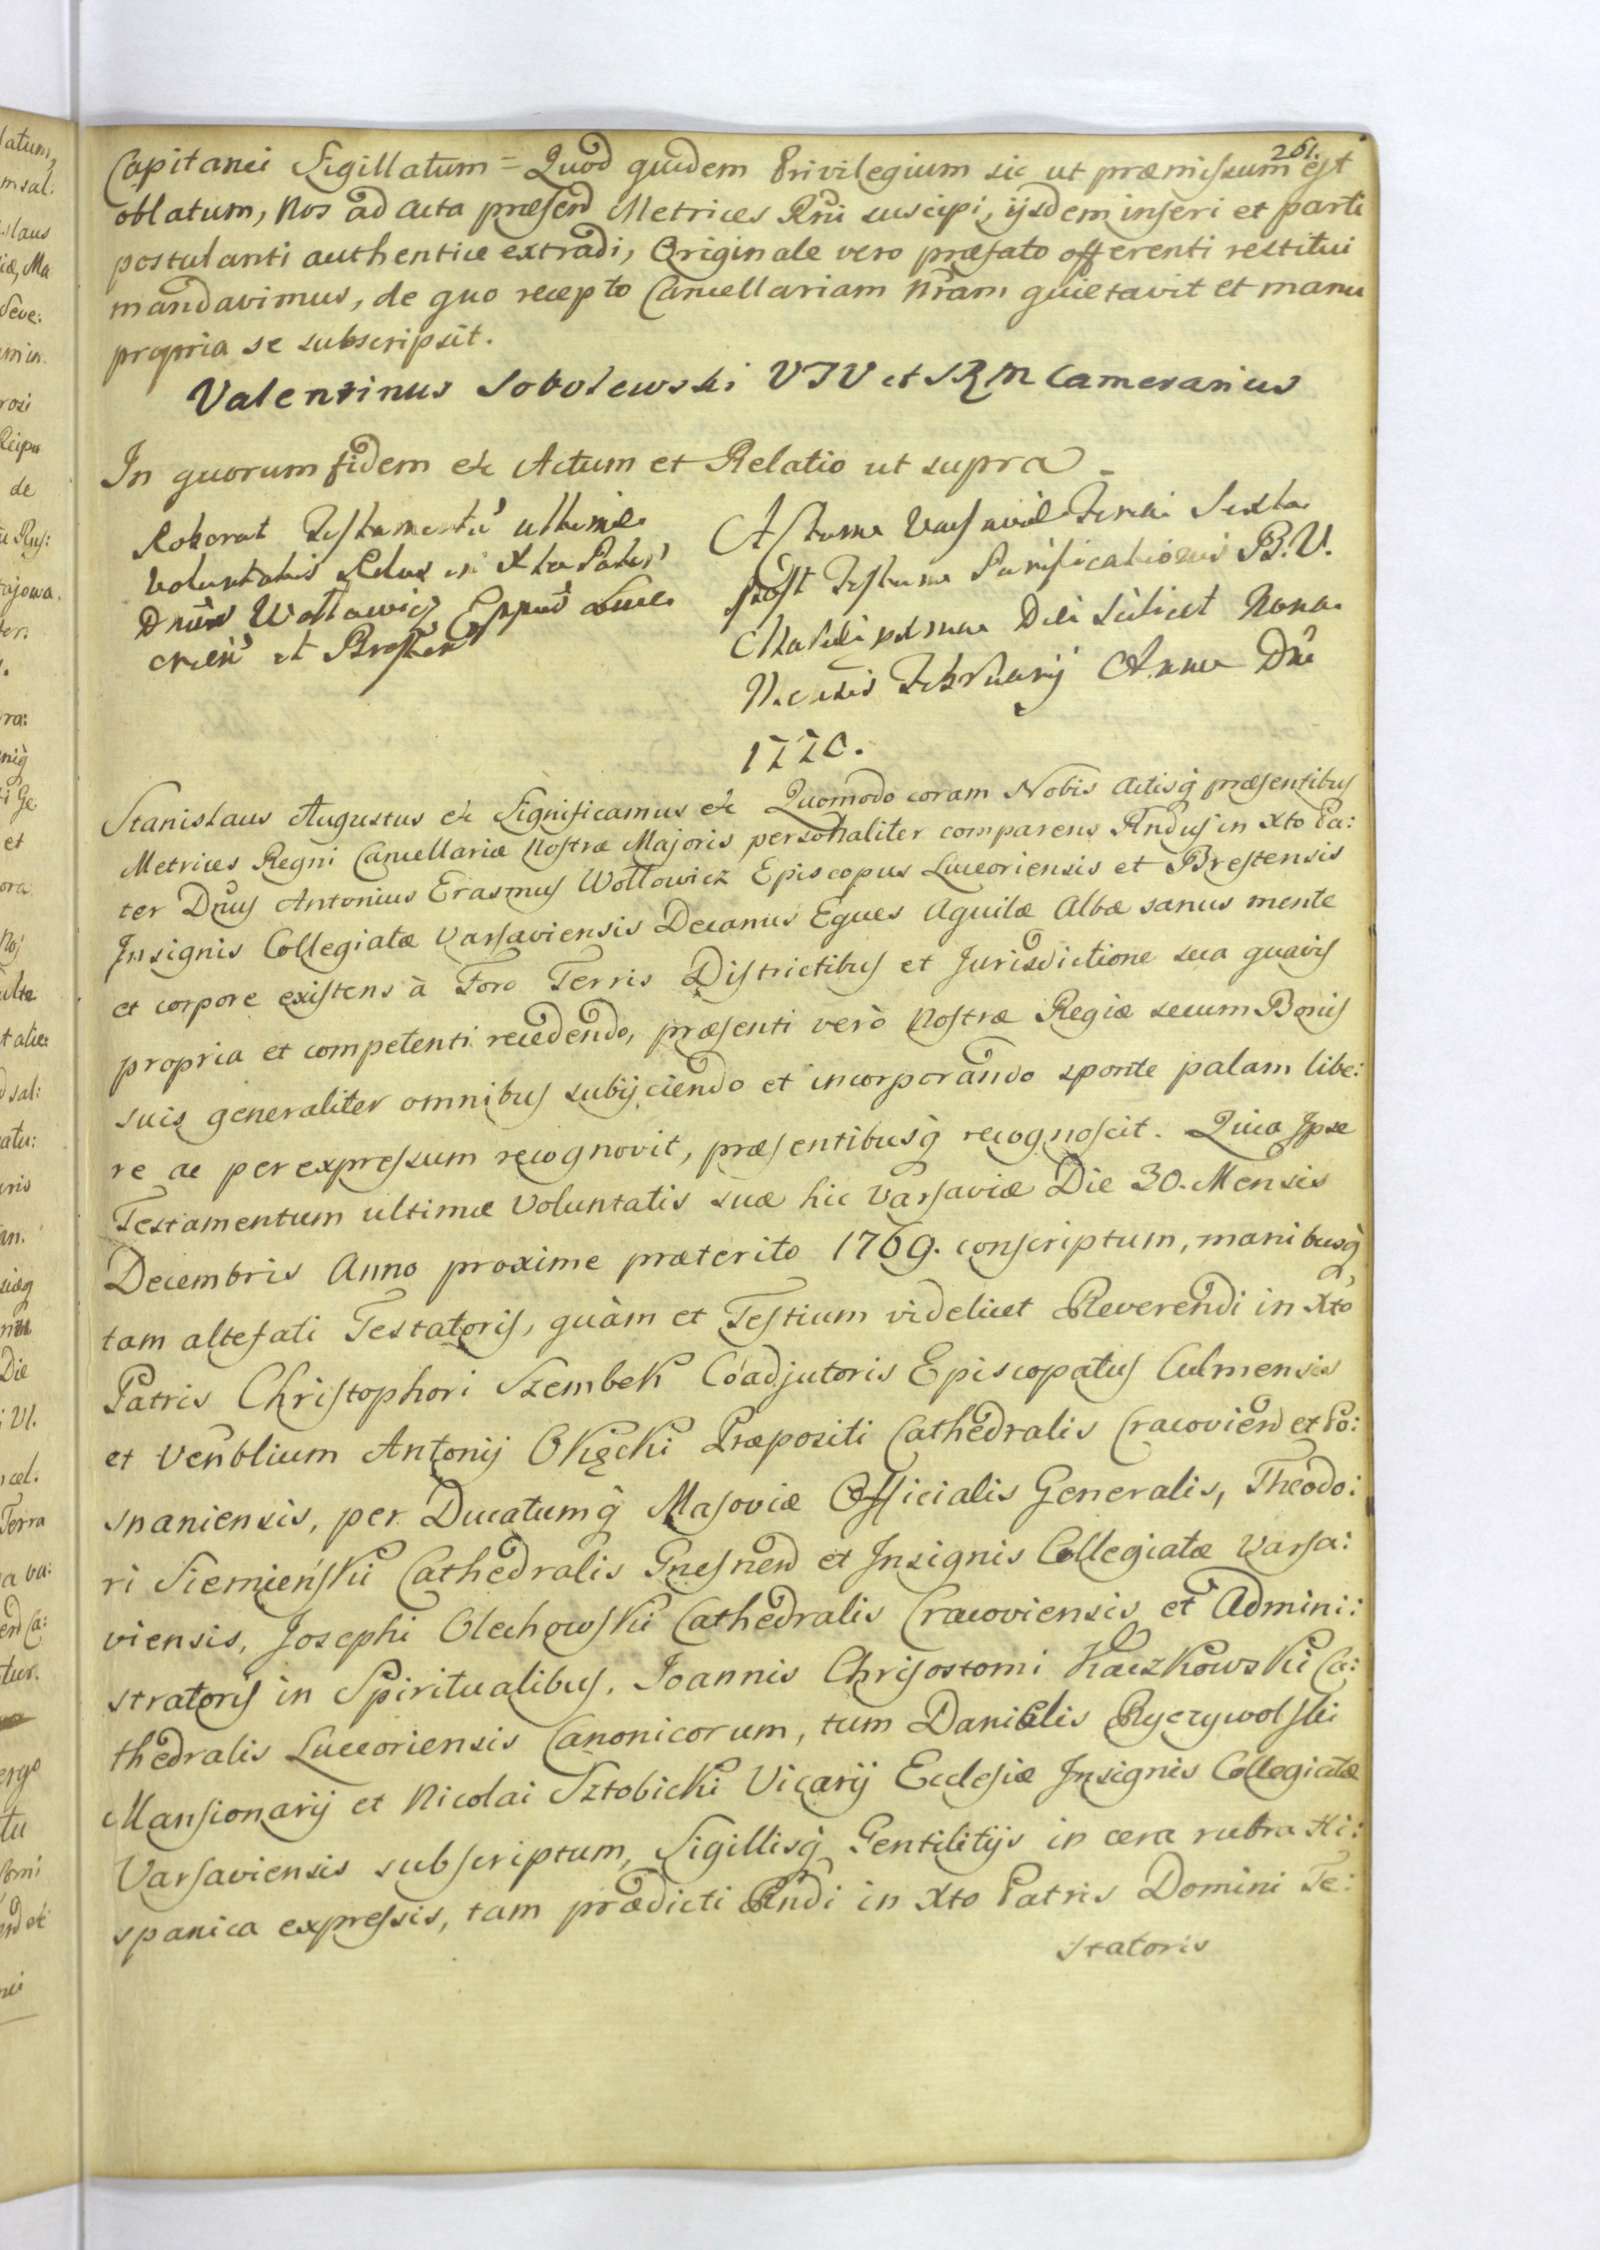 261.
Capitanei Sigillatum = Quod quidem Privilegium sic ut præmissum est
oblatum, Nos ad Acta præsend Metrices Rni suscipi, ijsdem inseri et parti
postulanti authentice extradi, Originale vero præfato offerenti restitui
mandavimus, de quo recepto Cancellariam Nram quietavit et manu
propria se subscripsit.
Valentinus Sobolewski VJV et SRM Camerarius
In quorum fidem &c Actum et Relatio ut supra
Roborat Testamenti ultimæ
Voluntatis Rdus in Xto Pater
Dnus Wołłowicz Eppus Luce
orien et Bresten
Actum Varsaviæ Feria Sexta
post Festum Purificationis B. V.
Mariæ proxima Die scilicet Nona
Mensis Februarij Anno Dni
1770.
Stanislaus Augustus &c Significamus &c Quomodo coram Nobis Actisq præsentibus
Metrices Regni Cancellariæ Nostræ Majoris personaliter comparens Rndus in Xto Pa:
ter Dnus Antonius Erasmus Wołłowicz Episcopus Luceoriensis et Brestensis
Insignis Collegiatæ Varsaviensis Decanus Eques Aquilæ Albæ sanus mente
et corpore existens à Foro Terris Districtibus et Jurisdictione sua quavis
propria et competenti recedendo, præsenti verò Nostræ Regiæ secum Bonis
suis generaliter omnibus subijciendo et incorporando sponte palam libe:
re ac per expressum recognovit, præsentibusq recognoscit. Quia Ipse
Testamentum ultimæ Voluntatis suæ hic Varsaviæ Die 30. Mensis
Decembris Anno proxime præterito 1769. conscriptum, manibusq
tam altefati Testatoris, quàm et Testium videlicet Reverendi in Xto
Patris Christophori Szembek Coadjutoris Episcopatus Culmensis
et Venblium Antonij Okęcki Præpositi Cathedralis Cracoviend et Po:
snaniensis, per Ducatumq Masoviæ Officialis Generalis, Theodo:
ri Siemieński Cathedralis Gnesnend et Insignis Collegiatæ Varsa:
viensis, Josephi Olechowski Cathedralis Cracoviensis et Admini:
stratoris in Spiritualibus, Joannis Chrisostomi Kaczkowski Ca:
thedralis Luceoriensis Canonicorum, tum Danielis Ryczywolski
Mansionarij et Nicolai Sztobicki Vicarij Ecclesiæ Insignis Collegiatæ
Varsaviensis subscriptum, Sigillisq Gentilitijs in cera rubra Hi:
spanica expressis, tam prædicti Rndi in Xto Patris Domini Te:
statoris